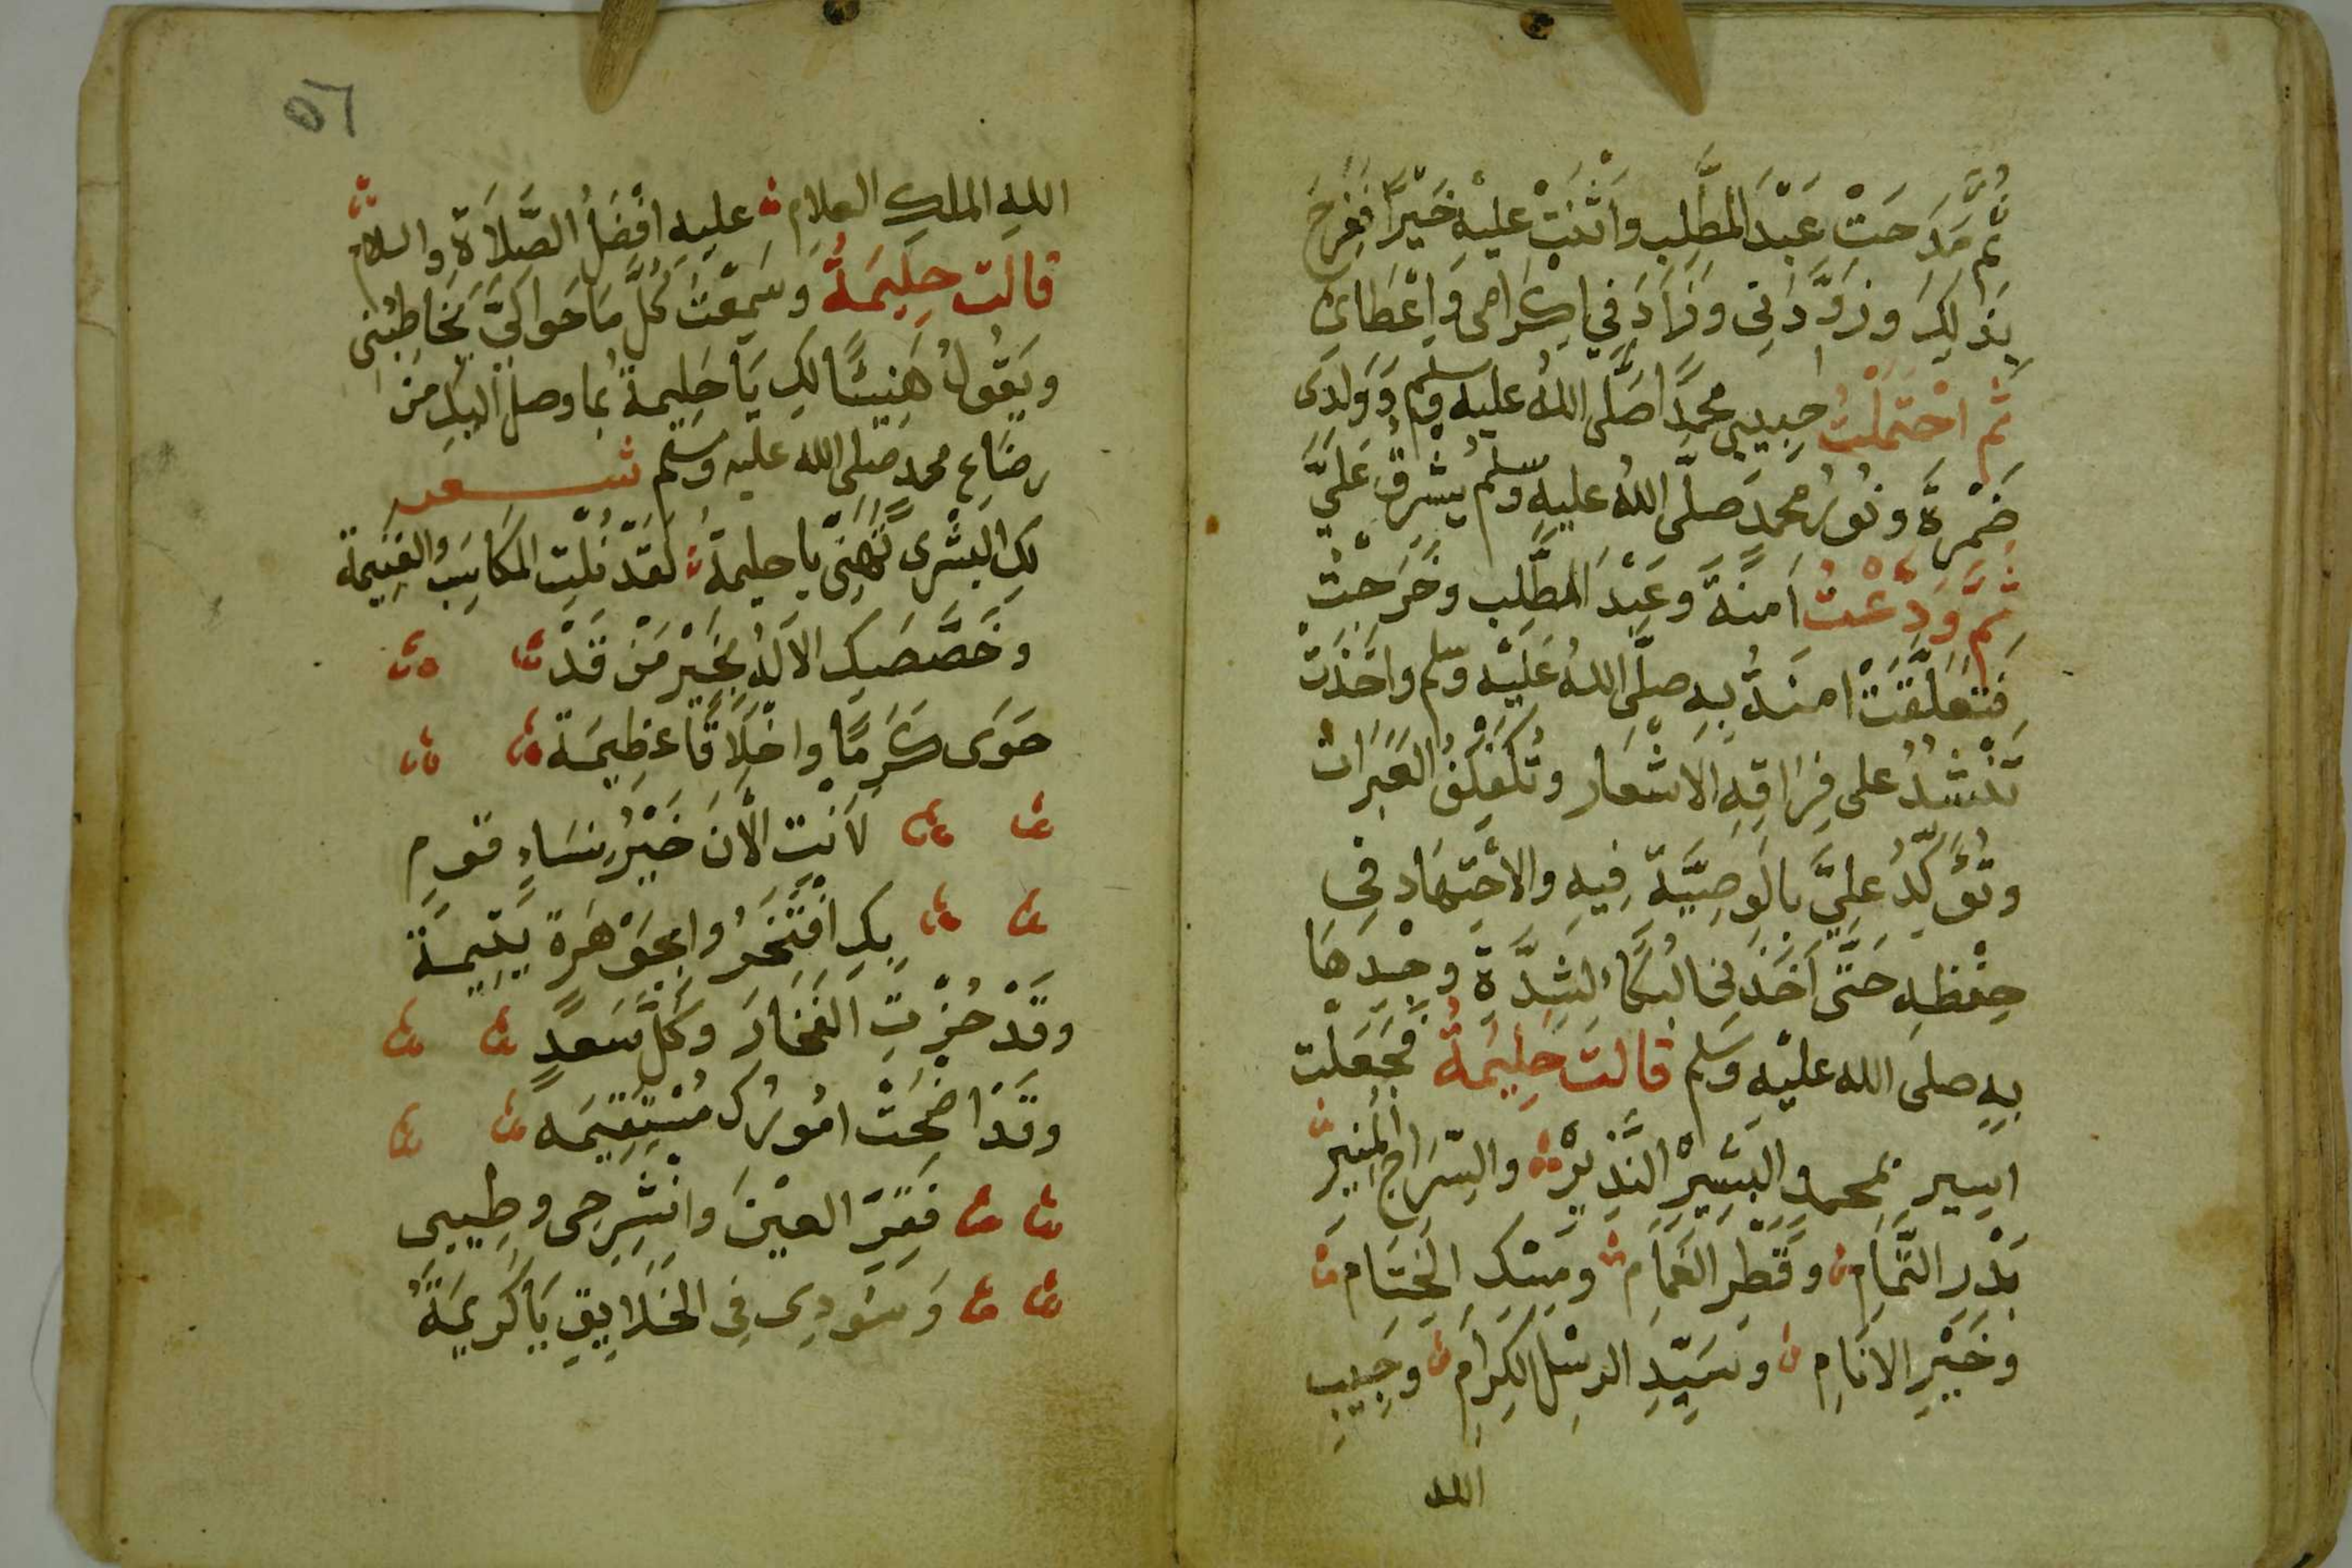 ثُمَّ مَدَحَتْ عَبْدَ المُطَّلِب وَاَثْنَتْ عَلَيْهِ خَيْرًا فَفَرِحَ
بِذَلِكَ وزَوَّدَنِى وَزَادَ فِي اِكْرَامِى وَاِعْطَائ
ثم احْتَمَلْتُ حبيبي محمدًا صَلَّى اللهُ عليه وسلم وَوَلَدِى
ضَمْرَةَ ونُورُ محمدٍ صلَّى اللهُ عليه وسلم يُشْرِقُ عَلَيَّ
ثُمَّ وَدَّعْتُ اَمنَةَ وعَبْدَ المطَّلِب وخَرَجْتُ
فَتَعَلَّقَتْ امنةُ بِهِ صلَّى اللهُ عَلَيْهِ وسلم واَخَذَتْ
تَنْشُدُ على فِرَاقِهِ الاَشْعَار وتُكَفْكِفُ العَبَرَات
وتُؤَكِّدُ عَلَيَّ بالوَصِيَّةِ فِيهِ والاجْتِهَادِ فى
حِفْظِهِ حَتَّى اَخَذَ فى البُكَاءُ لِشِدَّةِ وجْدِهَا
بِهِ صلى الله عليْهِ وَسَلم قالت حَلِيمَةُ فَجَعَلْتُ
اسِير بمحمد البَشِيرْ النَّذِيرْ والسِّرَاج المُنِيرْ
بَدْرِ التَّمَامِ وقَطْرِ الغَمَامِ ومِسْكِ الخِتَامِ
وخَيْرِ الانَامِ وسَيِّدِ الرسْلِ الكِرَامِ وحَبِيبِ
الله
٥٦
اللهِ الملكِ العلامِ عليهِ افْضَلُ الصَّلَاةِ والسلام
قالت حلِيمَةُ وَسَمِعْتُ كُلَّ مَا حَوَالَيَّ يُخَاطِبُنِى
ويَقُولُ هَنِيئًا لكِ يَا حَلِيمةُ بما وصل اليكِ مِنْ
رضَاعِ محمد صلى الله عليه وسلم شعر
لكِ البُشْرى تَهَنَّى يا حليمةُ لقَدْ نُلْتِ المكَاسِبَ والغنِيمَة
وخَصَّصَكِ الالَهُ بخَيْرِ مَنْ قَدْ
حَوَى كَرَمًا واخْلَاقًا عظِيمَة
لاَنْتِ الآنَ خَيْرُ نِسَاءِ قوم
بِكِ افْتَخَرُوا بجَوْهَرَة يَتِيمَة
وقَدْ حُزْتِ الفخَارَ وكُلَّ سَعدٍ
وقَدْ اضْحَتْ امُورُكِ مُسْتَقِيمَه
فَقَرِّ العَيْنَ وَانْشَرِحِى وطِيبِى
وَسُودِى فِى الخَلَايِقِ يَا كَرِيمَةُ